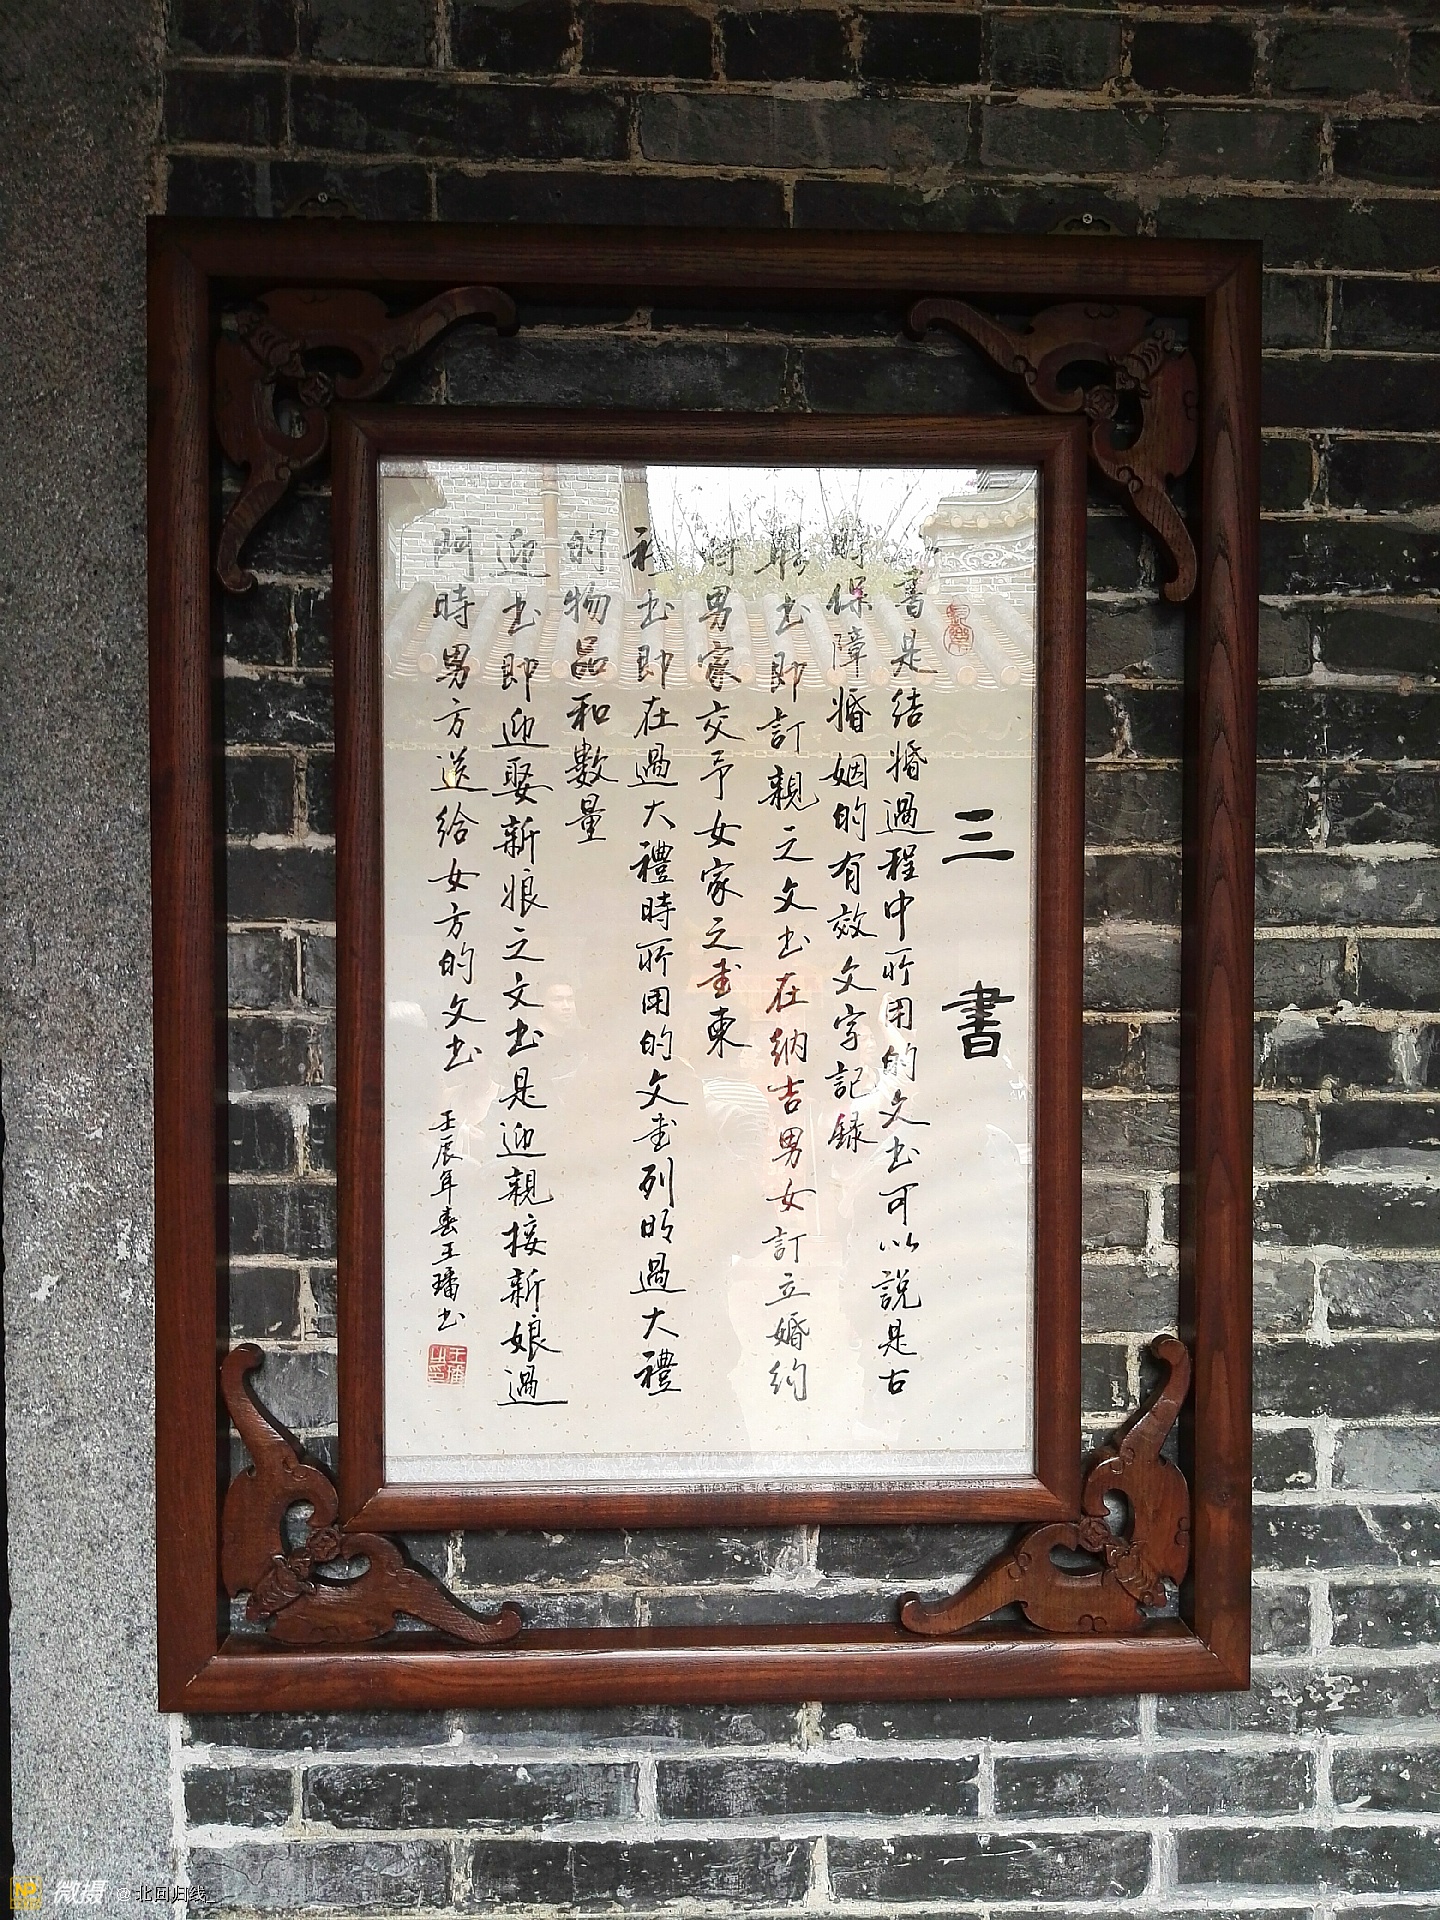 三書
三書是結婚過程中所用的文书可以說是古
時保障婚姻的有效文字記録
聘书即訂親之文书在納吉男女訂立婚約
時男家交予女家之書柬
礼书即在過大禮時所用的文書列明過大禮
的物品和數量
迎书即迎娶新娘之文书是迎親接新娘過
門時男方送給女方的文书
壬辰年春王璠书
微摄 @北回归线